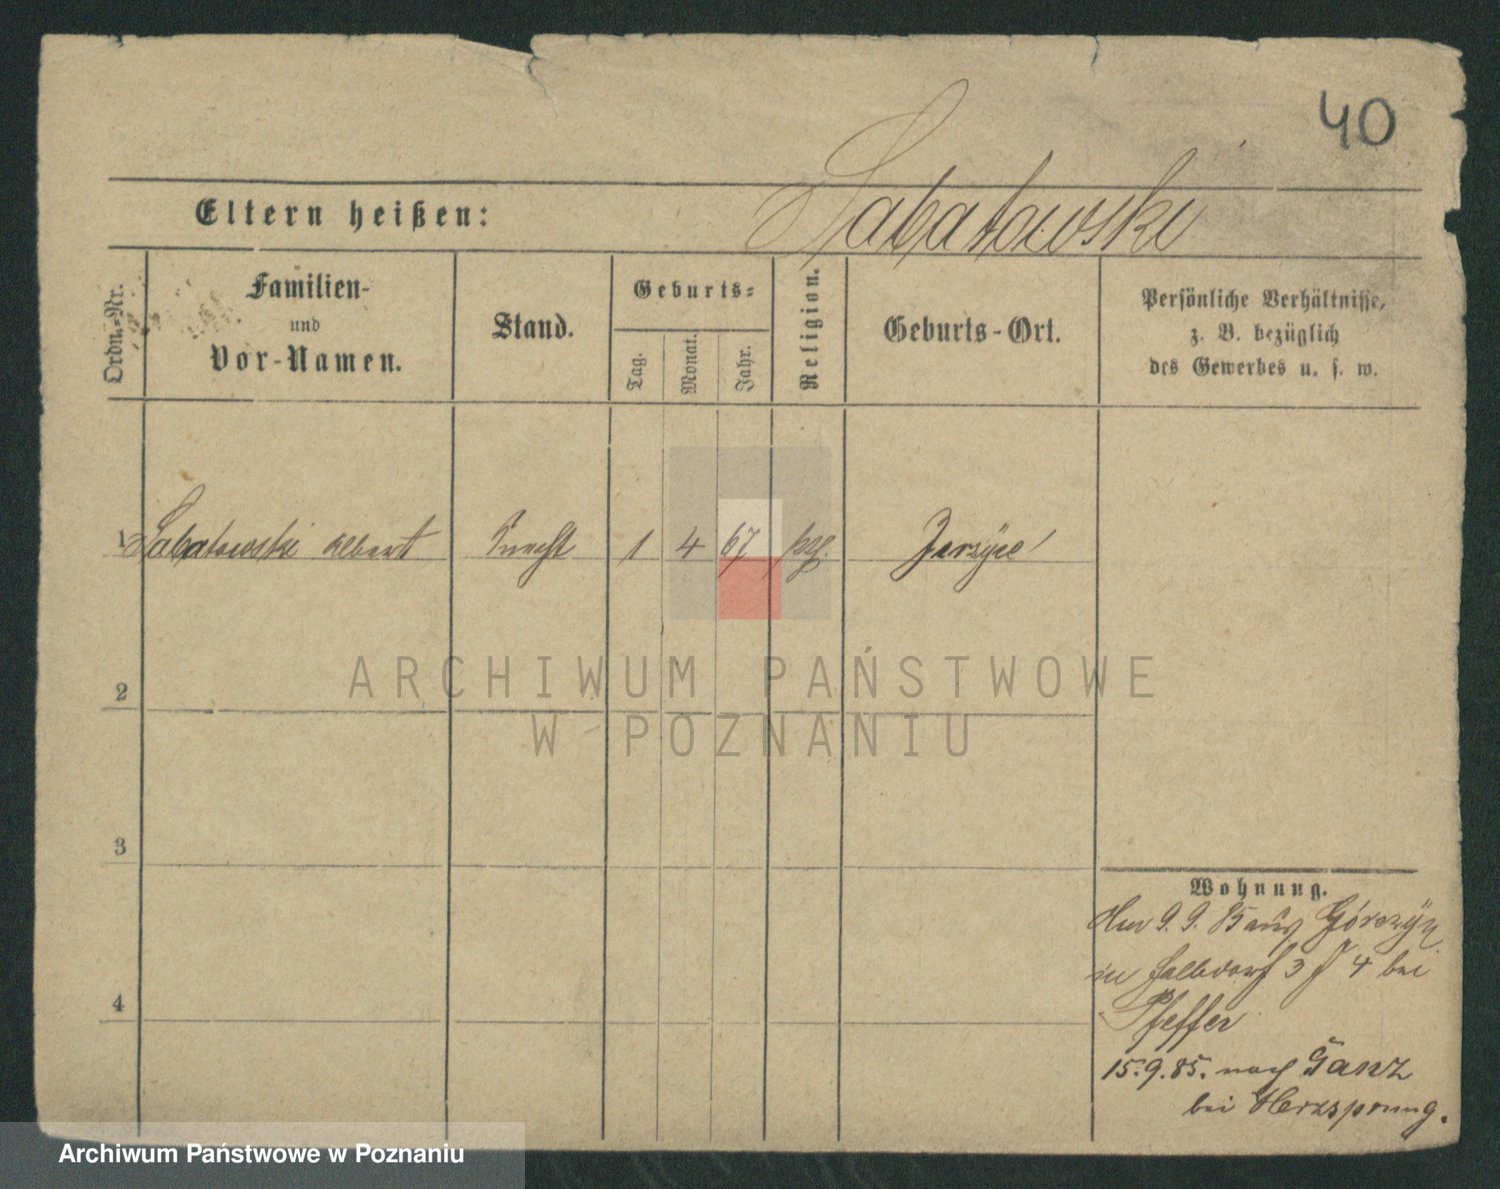 40
Eltern heißen: Sabatowski
Ordn.-Nr.
Familien-
und
Vor-Namen.
Stand.
Geburts-
Tag.
Monat.
Jahr.
Religion.
Geburts-Ort.
Persönliche Verhältnisse,
z. B. bezüglich
des Gewerbes u. s. w.
1 Sabatowski Albert Knecht 1 4 67 Jerzÿce
ARCHIWUM PAŃSTWOWE
W POZNANIU
2
3
4
Wohnung.
9. 9. 85 aus Górczÿn
in Halbdorf 3 4 bei
Pfeffer
15.9.85. nach Ganz
bei Herzsprung.
Archiwum Państwowe w Poznaniu